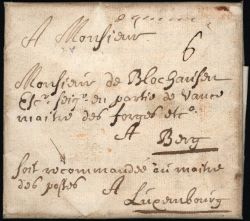 A Monsieur
6
Monsieur de Blochausen
Etcr. seigr. en partie de Vance
maitre des forges etcr.
A
Berg
soit recommandée au maitre
des postes A
Luxembourg